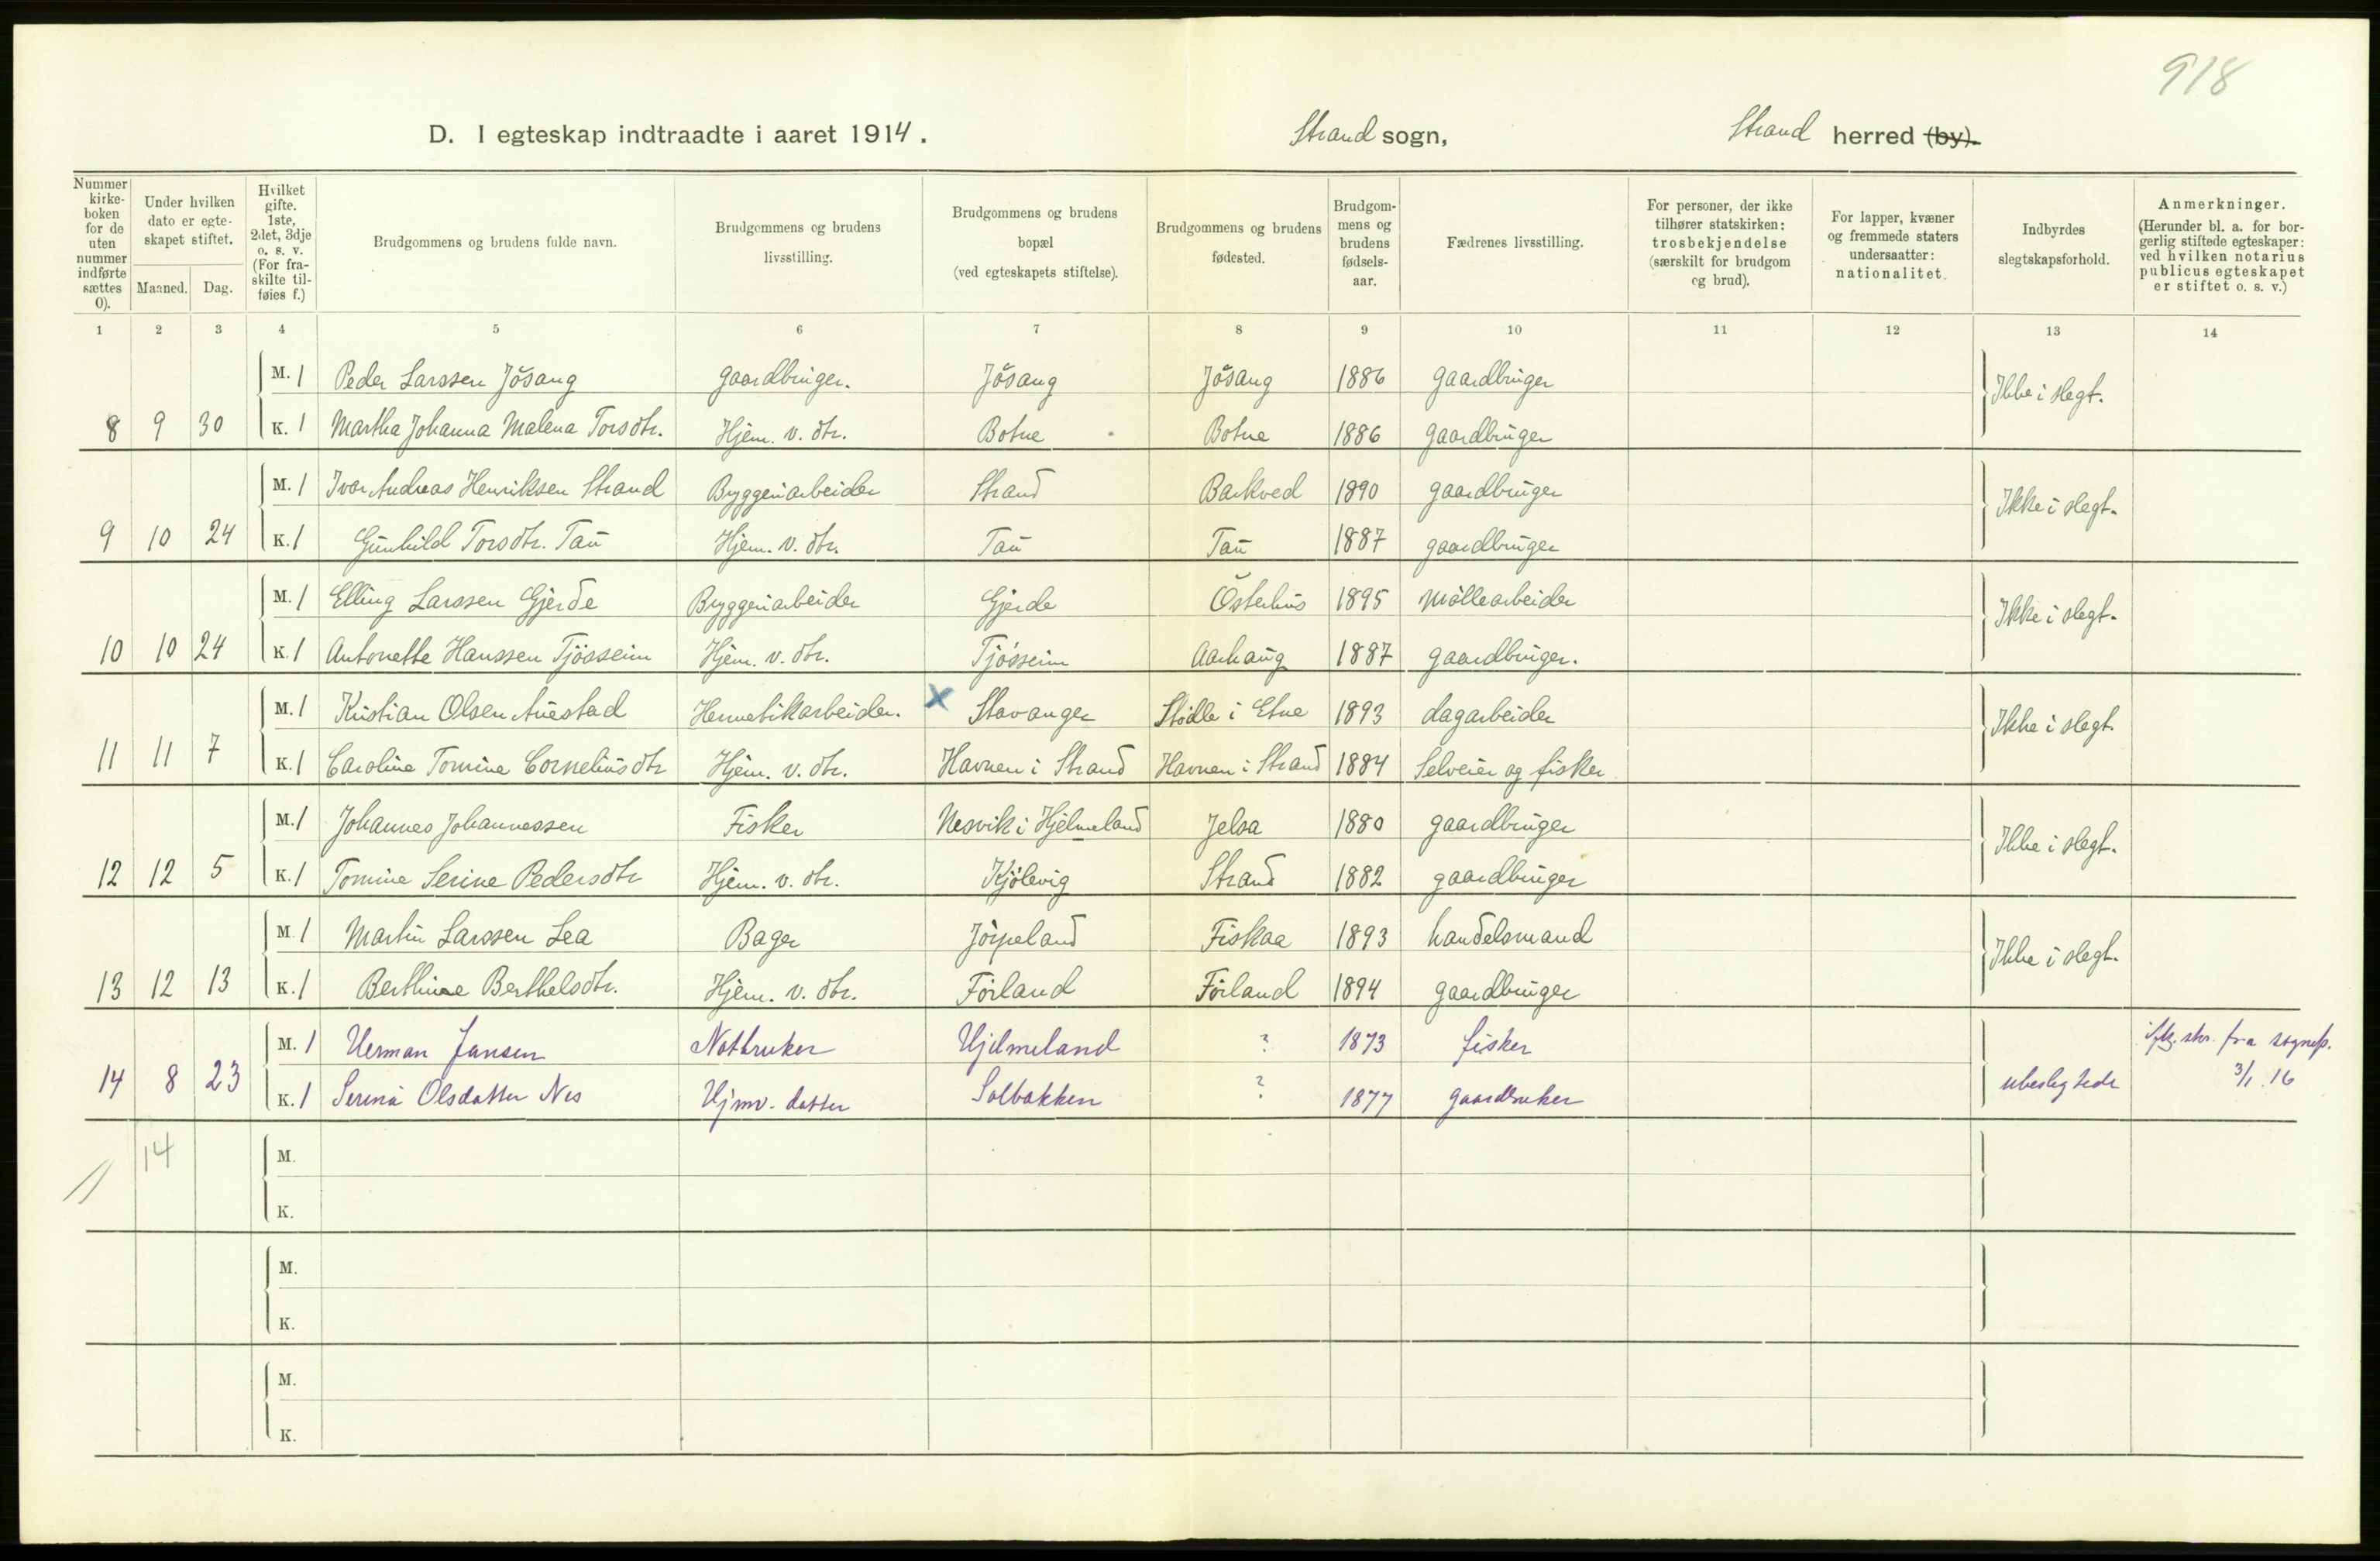 918
D. I egteskap indtraadte i aaret 1914. Strand sogn, Strand herred (by).
Nummer kirkeboken for de uten nummer indførte sættes 0). Under hvilken dato er egteskapet stiftet. Maaned. Dag. Hvilket gifte. 1ste, 2det, 3dje o. s. v. (For fraskilte tilføies f.) Brudgommens og brudens fulde navn. Brudgommens og brudens livsstilling. Brudgommens og brudens bopæl (ved egteskapets stiftelse). Brudgommens og brudens fødested. Brudgommens og brudens fødselsaar. Fædrenes livsstilling. For personer, der ikke tilhører statskirken: trosbekjendelse (særskilt for brudgom og brud). For lapper, kvæner og fremmede staters undersaatter: nationalitet. Indbyrdes slegtskapsforhold. Anmerkninger. (Herunder bl. a. for borgerlig stiftede egteskaper: ved hvilken notarius publicus egteskapet er stiftet o. s. v.)
1 2 3 4 5 6 7 8 9 10 11 12 13 14
M. 1 Peder Larssen Jösang gaardbruger. Jösang Jösang 1886 gaardbruger Ikke i slegt.
8 9 30 K. 1 Martha Johanna Malena Torsdtr. Hjem. v. dtr. Botne Botne 1886 gaardbruger
M. 1 Ivar Andreas Henriksen Strand Bryggeriarbeider Strand Barkved 1890 gaardbruger Ikke i slegt.
9 10 24 K. 1 Gunhild Torsdtr. Tau Hjem. v. dtr. Tau Tau 1887 gaardbruger
M. 1 Elling Larssen Gjerde Bryggeriarbeider Gjerde Österhus 1895 Möllearbeider Ikke i slegt.
10 10 24 K. 1 Antonette Hanssen Tjösseim Hjem. v. dtr. Tjösseim Aarhaug 1887 gaardbruger.
M. 1 Kristian Olsen Auestad Hermetikarbeider. x Stavanger Stödle i Etne 1893 dagarbeider Ikke i slegt.
11 11 7 K. 1 Caroline Tomine Corneliusdtr Hjem. v. dtr. Havnen i Strand Havnen i Strand 1884 Selveier og fisker
M. 1 Johannes Johannessen Fisker Nesvik i Hjelmeland Jelsa 1880 gaardbruger Ikke i slegt.
12 12 5 K. 1 Tomine Serine Pedersdtr Hjem. v. dtr. Kjölevig Strand 1882 gaardbruger
M. 1 Martin Larssen Lea Bager Jörpeland Fiskaa 1893 handelsmand Ikke i slegt.
13 12 13 K. 1 Berthine Berthelsdtr. Hjem. v. dtr. Förland Förland 1894 gaardbruger
M. 1 Herman Jansen Notbruker Hjelmeland ? 1873 fisker iflg. skr. fra sognep.
14 8 23 K. 1 Serina Olsdatter Nes Hjmv. datter Solbakken ? 1877 gaardbruker ubeslegtede 3/1 16
14 M.
K.
M.
K.
M.
K.